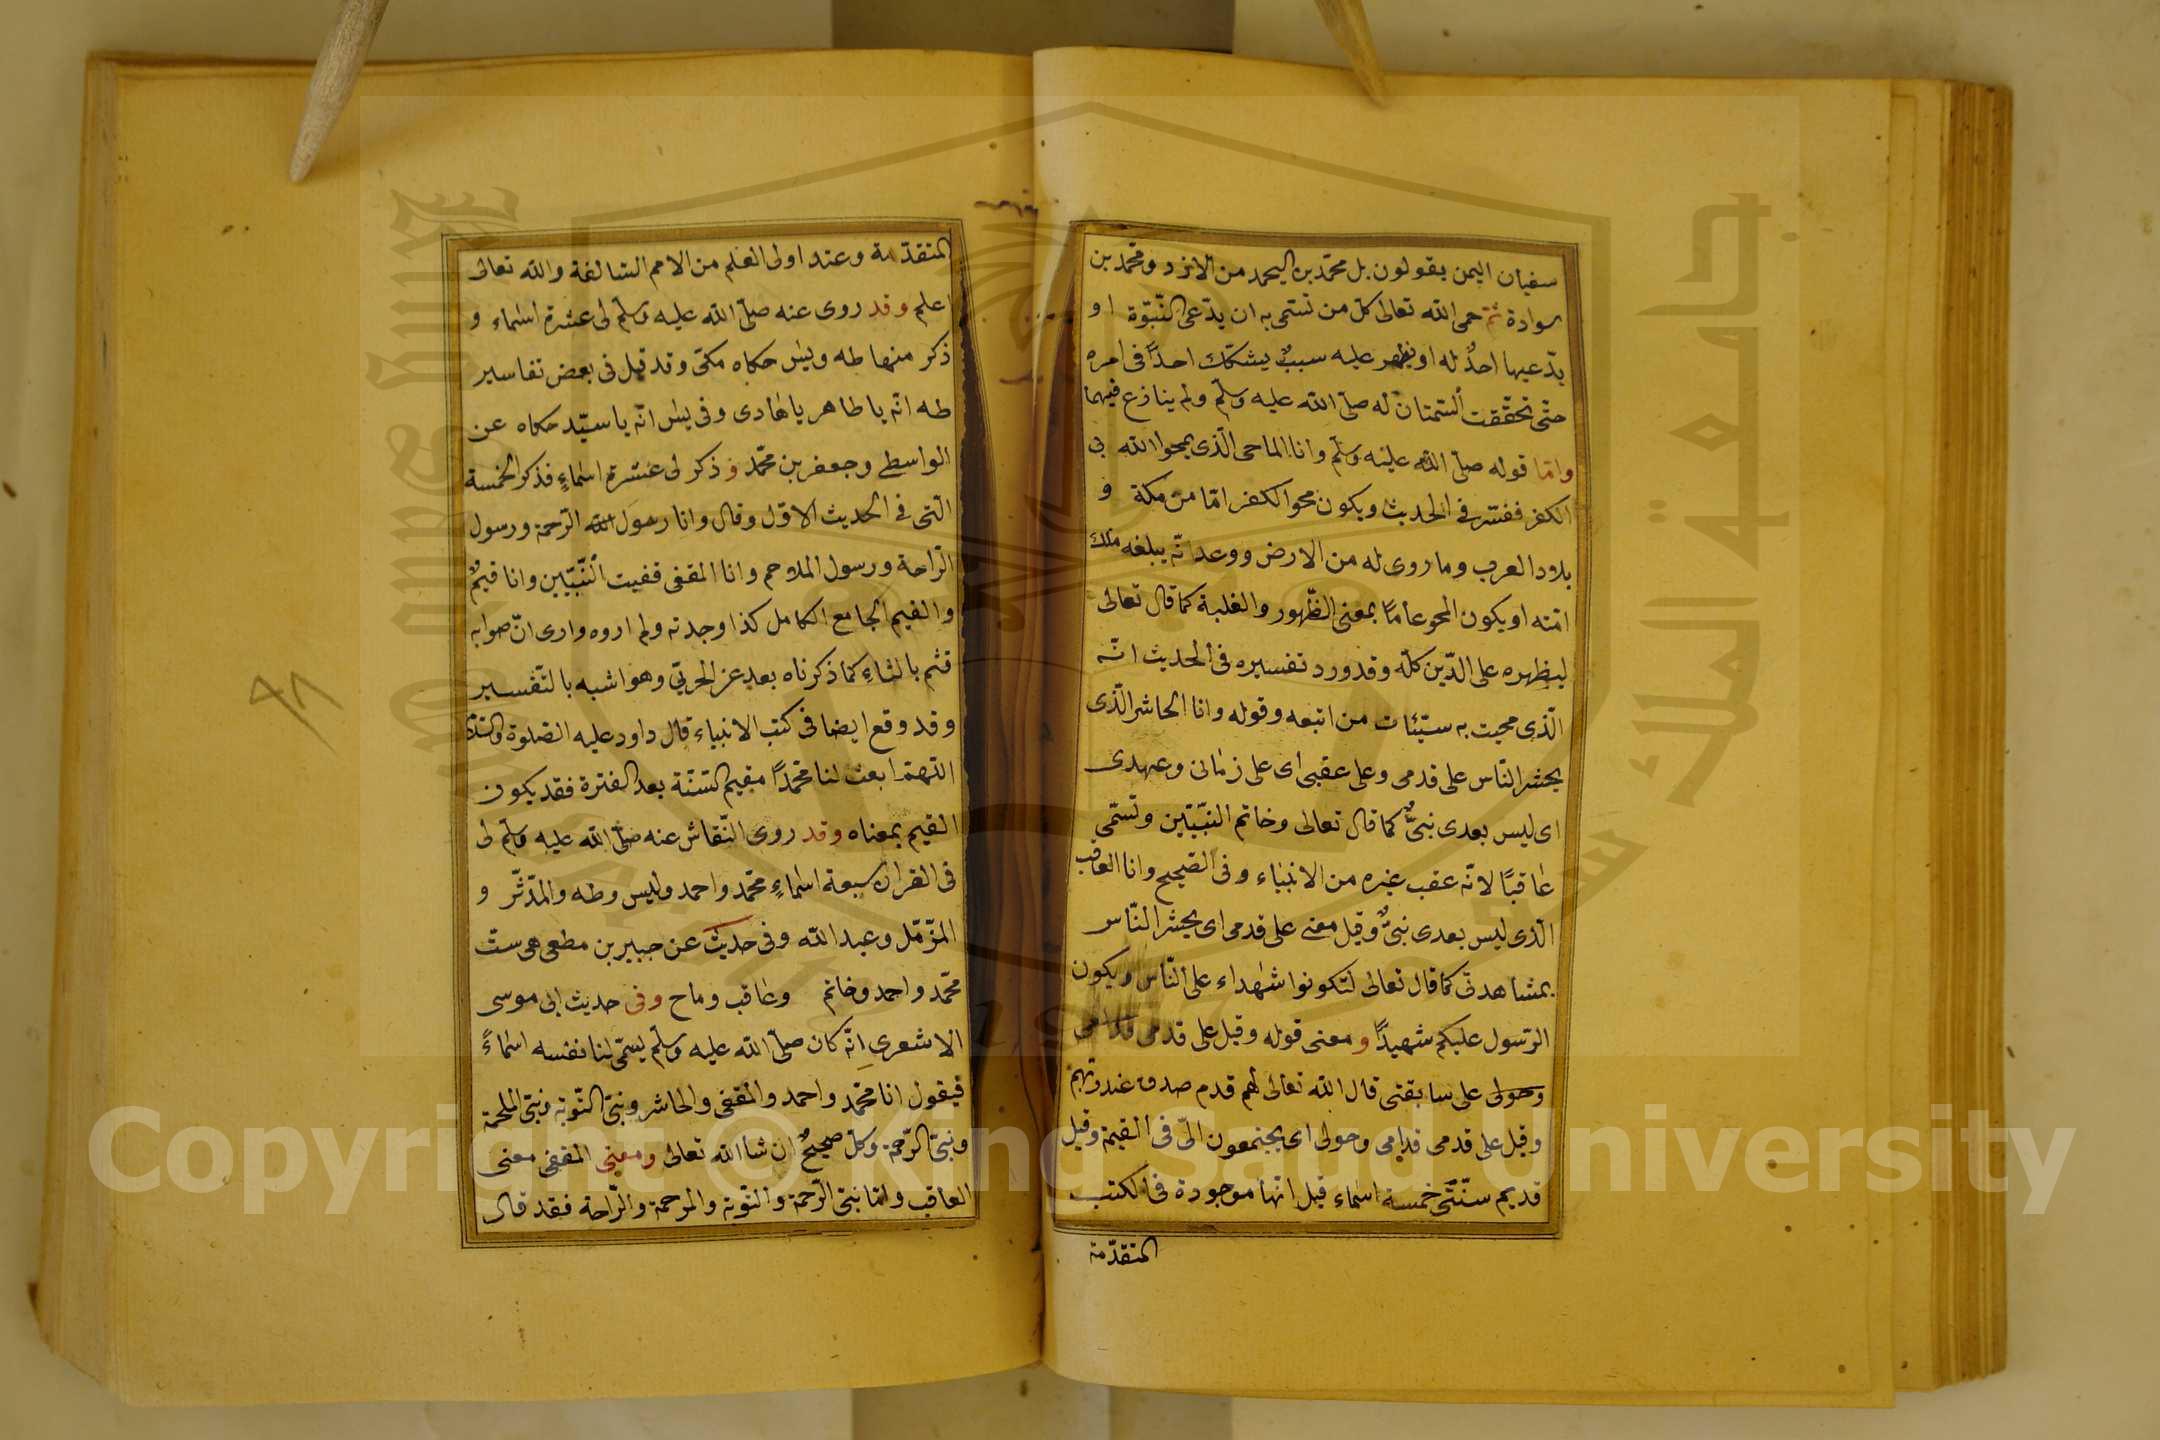 سفيان اليمن يقولون بل محمّد بن اليحمد من الازد ومحمد بن
سوادة ثم حمى الله تعالى كل من تسمى به ان يدّعى النّبوّة او
يدّعيها احدٌ له او يظهر عليه سببٌ يشكّك احدًا فى امره
حتّى تحقّقت السّمتان له صلى الله عليه وسلّم ولم ينازع فيهما
وامّا قوله صلى الله عليه وسلّم وانا الماحى الّذى يمحوا الله بى
الكفر ففسّر فى الحديث ويكون محو الكفر امّا من مكة و
بلاد العرب وما روى له من الارض ووعد انّه يبلغه ملك
امّته او يكون المحو عامًا بمعنى الظّهور والغلبة كما قال تعالى
ليظهره على الدّين كلّه وقد ورد تفسيره فى الحديث انّه
الّذى محيت به سيّئات من اتبعه وقوله وانا الحاشر الّذى
يحشر النّاس على قدمى وعلى عقبى اى على زمانى وعهدى
اى ليس بعدى نبىٌّ كما قال تعالى وخاتم النبّيّين وتسمّى
عاقبًا لانّه عقب غيره من الانبياء وفى الصّحيح وانا العاقب
الّذى ليس بعدى نبىٌّ وقيل معنى على قدمى اى يحشر النّاس
بمشاهدتى كما قال تعالى لتكونوا شهداء على النّاس ويكون
الرّسول عليكم شهيدًا ومعنى قوله وقيل على قدمى قدامى
وحولى على سابقتى قال الله تعالى لهم قدم صدق عند ربّهم
وقيل على قدمى قدامى وحولى اى يجتمعون الىّ فى القيمة وقيل
قديم سنّتى خمسة اسماء قيل انّها موجودة فى الكتب
المتقدّمة
المتقدّمة وعند اولى العلم من الامم السّالفة والله تعالى
اعلم وقد روى عنه صلى الله عليه وسلّم لى عشرة اسماء و
ذكر منها طه ويس حكاه مكّى وقد قيل فى بعض تفاسير
طه انّه يا طاهر يا هادى وفى يس انّه يا سيّد حكاه عن
الواسطى وجعفر بن محمّد وذكر لى عشرة اسماءٍ فذكر الخمسة
الّتى فى الحديث الاوّل وقال وانا رسول الله الرّحمة ورسول
الرّاحة ورسول الملاحم وانا المقفى قفيت النّبيّين وانا قيمٌ
والقيم الجامع الكامل كذا وجدته ولم اروه وارى انّ صوابه
قثم بالثاءِ كما ذكرناه بعد عن الحربىّ وهو اشبه بالتّفسير
وقد وقع ايضا فى كتب الانبياء قال داود عليه الصّلوة والسّلام
اللّهمّ ابعث لنا محمّدًا مقيم السّنّة بعد الفترة فقد يكون
القيم بمعناه وقد روى النّقاش عنه صلّى الله عليه وسلّم لى
فى القران سبعة اسماءٍ محمّد واحمد ويس وطه والمدّثّر و
المزّمّل وعبد الله وفى حديث عن جبير بن مطعم هى ستّ
محمّد واحمد وخاتم وعاقب وماح وفى حديث ابى موسى
الاشعرى انّه كان صلّى الله عليه وسلّم يسمّى لنا نفسه اسماءً
فيقول انا محمّد واحمد والمقفى والحاشر ونبىّ التّوبة ونبىّ الملحمة
ونبىّ الرّحمة وكلّ صحيحٌ ان شا الله تعالى ومعنى المقفى معنى
العاقب وامّا نبىّ الرّحمة والتّوبة والمرحمة والرّاحة فقد قال
٩٨
Copyright © King Saud University